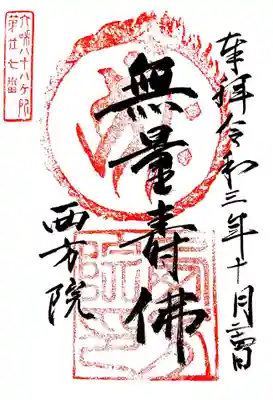 奉拝令和三年十月
無量寿佛
西方院
八十八ヶ所
第廿七番